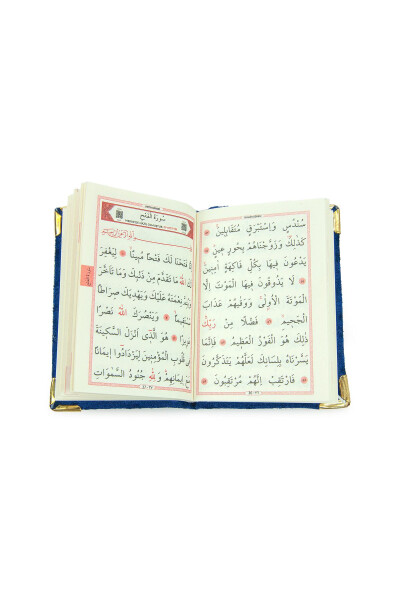 سُنْدُسٍ وَاِسْتَبْرَقٍ مُتَقَابِلِينَ
كَذٰلِكَ وَزَوَّجْنَاهُمْ بِحُورٍ عِينٍ
يَدْعُونَ فِيهَا بِكُلِّ فَاكِهَةٍ اٰمِنِينَ
لَا يَذُوقُونَ فِيهَا الْمَوْتَ اِلَّا
الْمَوْتَةَ الْاُولٰى وَوَقٰيهُمْ عَذَابَ
الْجَحِيمِ فَضْلًا مِنْ رَبِّكَ
ذٰلِكَ هُوَ الْفَوْزُ الْعَظِيمُ فَاِنَّمَا
يَسَّرْنَاهُ بِلِسَانِكَ لَعَلَّهُمْ يَتَذَكَّرُونَ
فَارْتَقِبْ اِنَّهُمْ مُرْتَقِبُونَ
سُورَةُ الْفَتْحِ
فَتَحْنَا لَكَ فَتْحًا مُبِينًا لِيَغْفِرَ
اللّٰهُ مَا تَقَدَّمَ مِنْ ذَنْبِكَ وَمَا تَاَخَّرَ
نِعْمَتَهُ عَلَيْكَ وَيَهْدِيَكَ صِرَاطًا
وَيَنْصُرَكَ اللّٰهُ نَصْرًا
هُوَ الَّذِى اَنْزَلَ السَّكِينَةَ
قُلُوبِ الْمُؤْمِنِينَ لِيَزْدَادُوا اِيمَانًا
اِيمَانِهِمْ وَلِلّٰهِ جُنُودُ السَّمٰوَاتِ